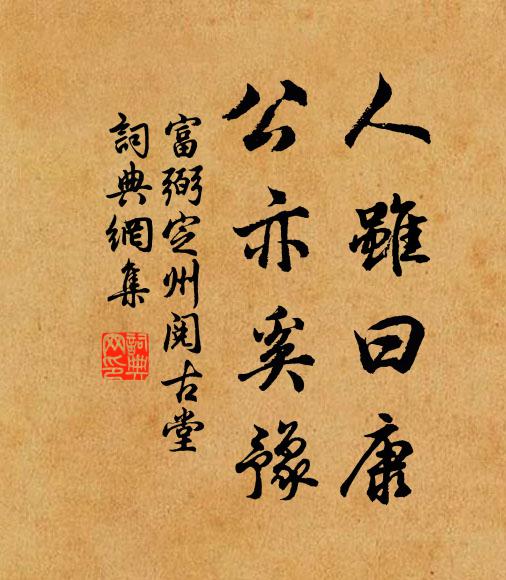 人雖曰康
公亦奚豫
富弼定州閱古堂
詞典網集
詞典
网印